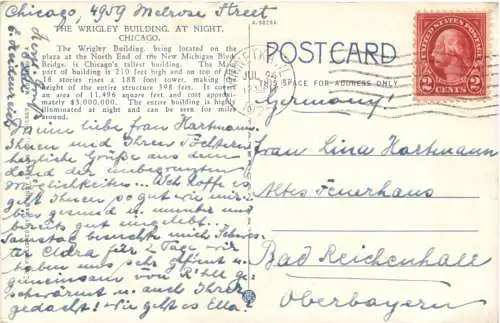 Chicago, 4909 Melrose Street
A-58294
THE WRIGLEY BUILDING, AT NIGHT,
CHICAGO.
The Wrigley Building, being located on the
plaza at the North End of the New Michigan Blvd.
Bridge, is Chicago's tallest building. The Main
part of building is 210 feet high and on top of the
16 stories rises a 188 foot tower, making the
height of the entire structure 398 feet. It covers
an area of 11,496 square feet and cost approxi-
mately $3,000,000. The entire building is highly
illuminated at night and can be seen for miles
around.
Meine liebe Frau Hartmann.
Ihnen und Ihren Töchtern
herzliche Grüße aus dem
Land der unbegrenzten
Möglichkeiten... Ich hoffe es
geht Ihnen so gut wie mir
bin gesund u. munter und
bereits gut eingelebt.
Samstag besucht mich
für 2 Tage wir
haben uns sehr gefreut u.
gemeinsam von R'hall ge-
schwärmt u. auch Ihrer
gedacht! Wie geht es Ella?
POSTCARD
THIS SPACE FOR ADDRESS ONLY
JUL 24
UNITED STATES POSTAGE
2 CENTS 2
Germany!
Frau Lina Hartmann
Altes Feuerhaus
Bad Reichenhall
Oberbayern